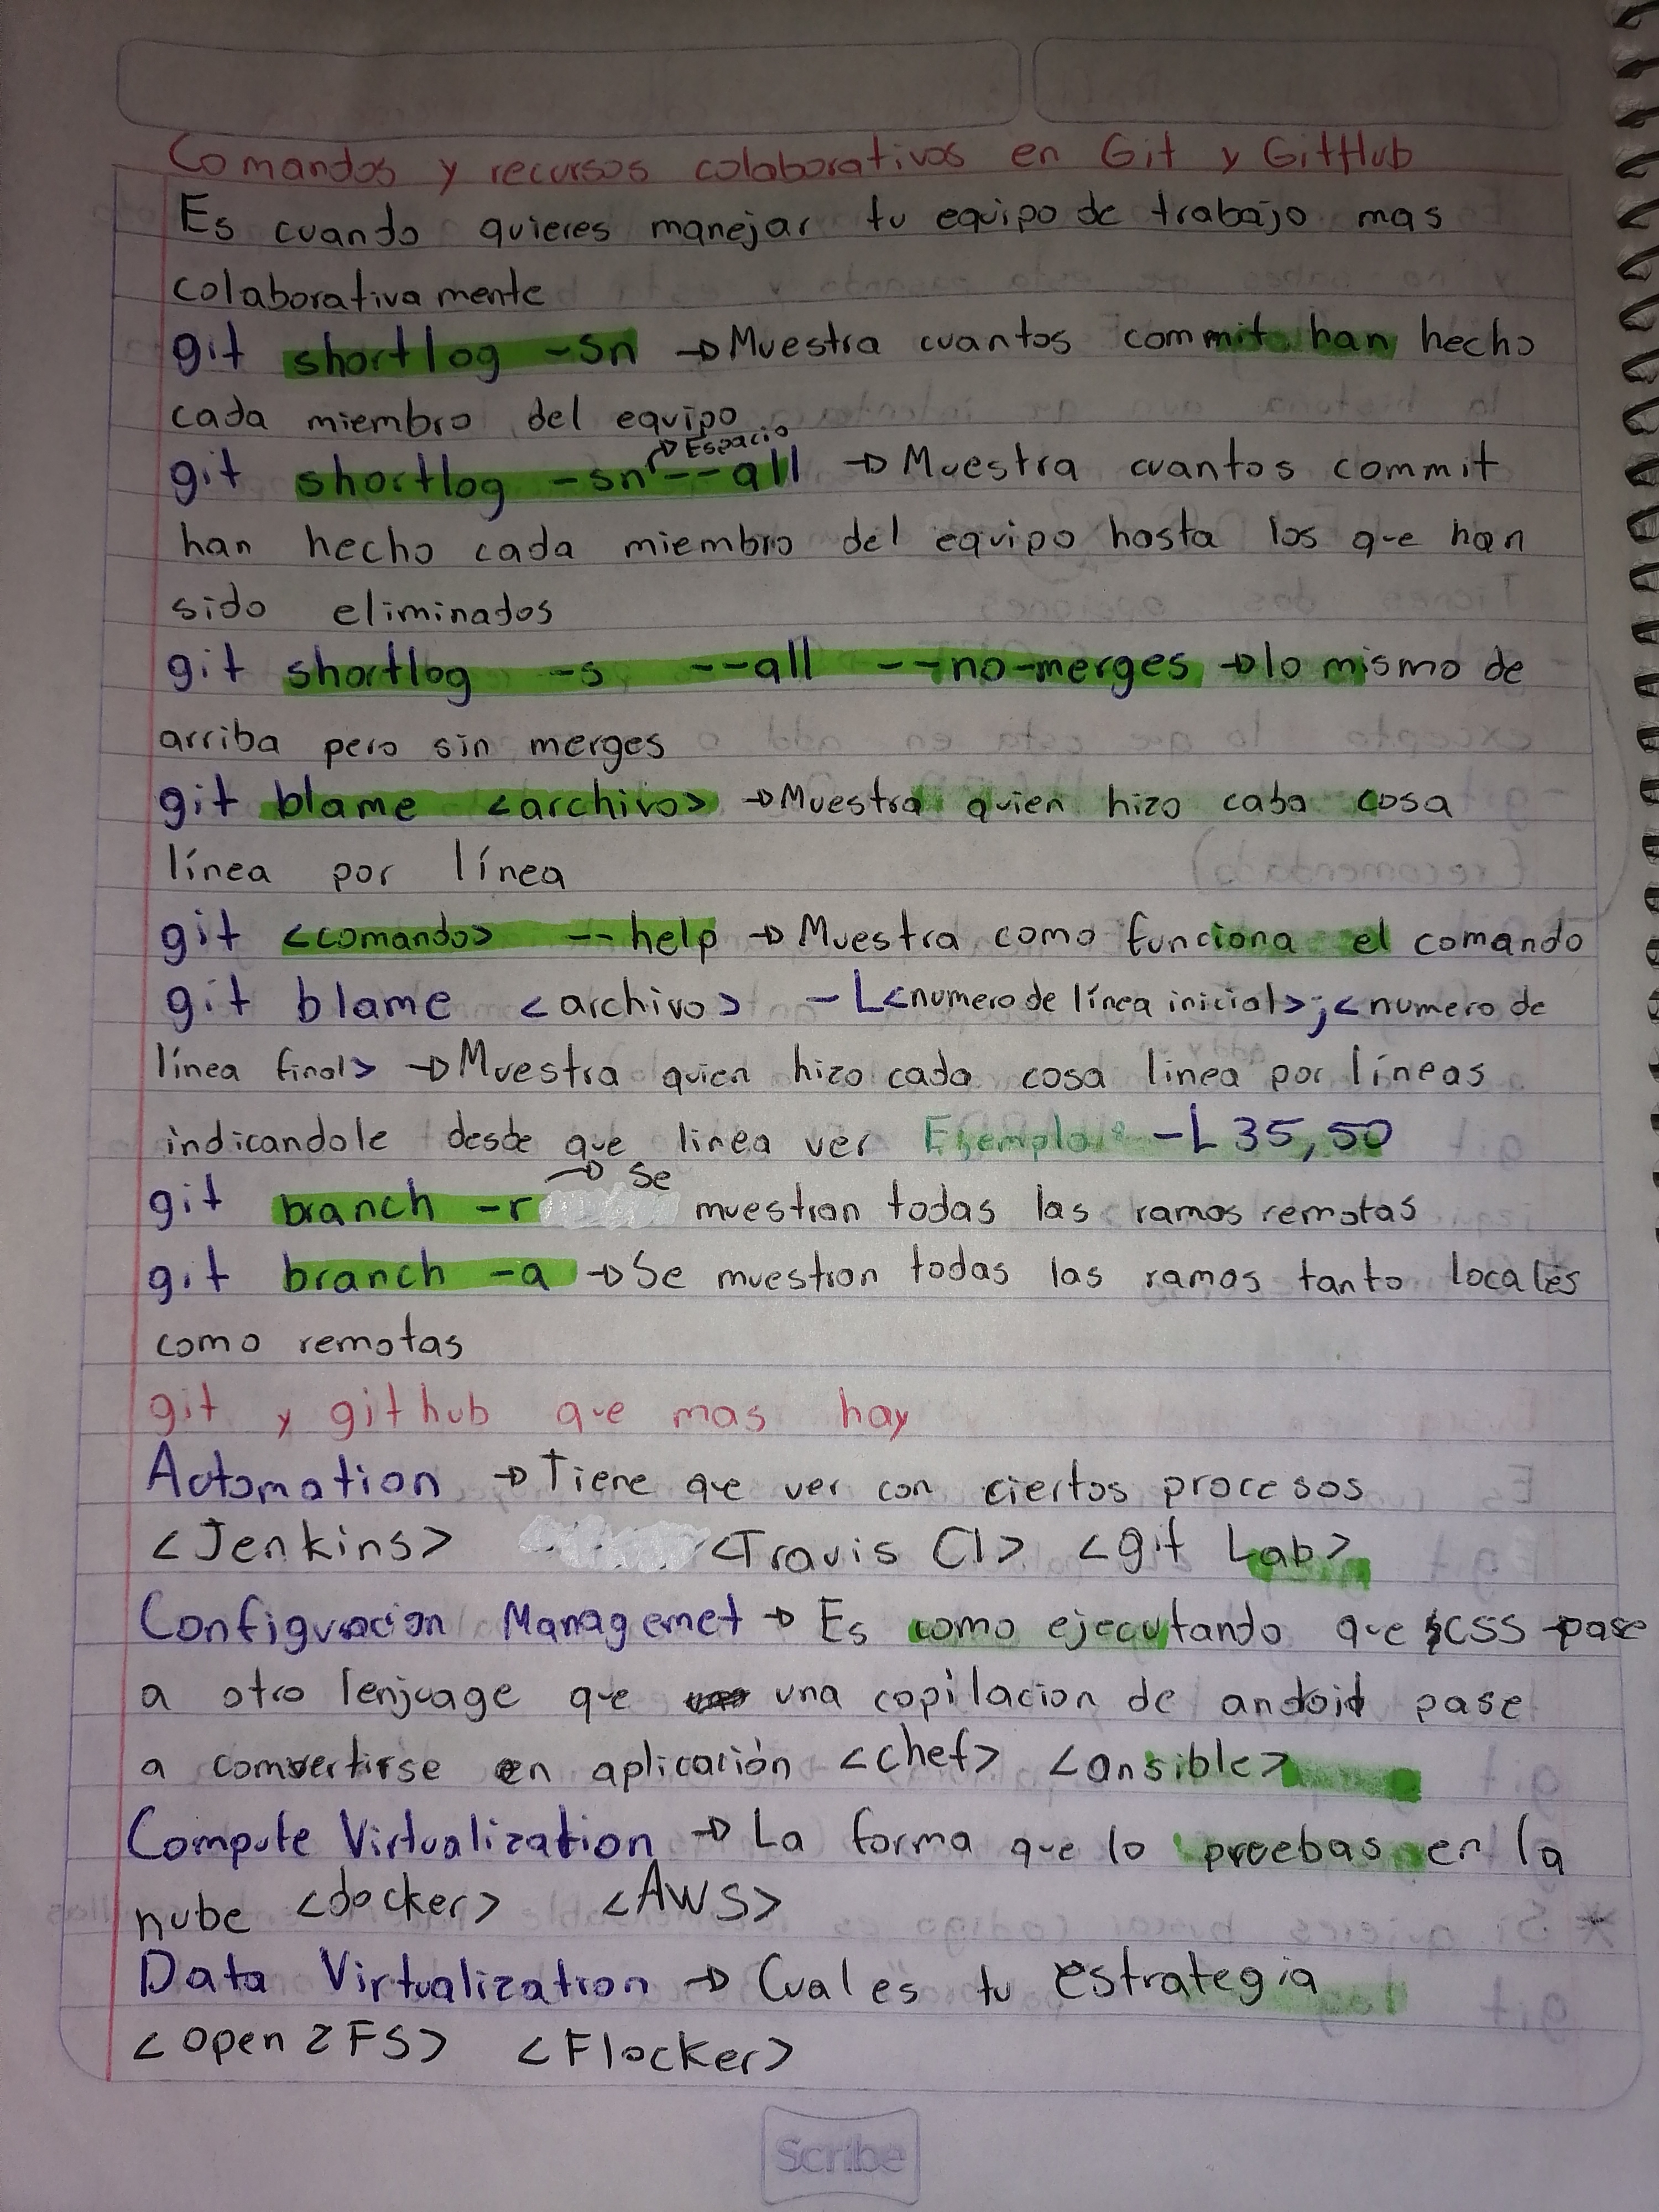 Comandos y recursos colaborativos en Git y GitHub
Es cuando quieres manejar tu equipo de trabajo mas
colaborativamente
git shortlog -sn → Muestra cuantos commit han hecho
cada miembro del equipo
→ Espacio
git shortlog -sn --all → Muestra cuantos commit
han hecho cada miembro del equipo hasta los que han
sido eliminados
git shortlog -s --all --no-merges → lo mismo de
arriba pero sin merges
git blame <archivo> → Muestra quien hizo caba cosa
línea por línea
git <comando> --help → Muestra como funciona el comando
git blame <archivo> -L<numero de línea inicial>;<numero de
línea final> → Muestra quien hizo cada cosa linea por líneas
indicandole desde que linea ver Ejemplo: -L 35,50
git branch -r → Se muestran todas las ramas remotas
git branch -a → Se muestran todas las ramas tanto locales
como remotas
git y github que mas hay
Automation → Tiene que ver con ciertos procesos
<Jenkins> <Travis CI> <git Lab>
Configuracion Managemet → Es como ejecutando que SCSS pase
a otro lenjuage que una copilacion de andoid pase
a comvertirse en aplicación <chef> <ansible>
Compute Virtualization → La forma que lo pruebas en la
nube <docker> <AWS>
Data Virtualization → Cual es tu estrategia
<open ZFS> <Flocker>
Scribe